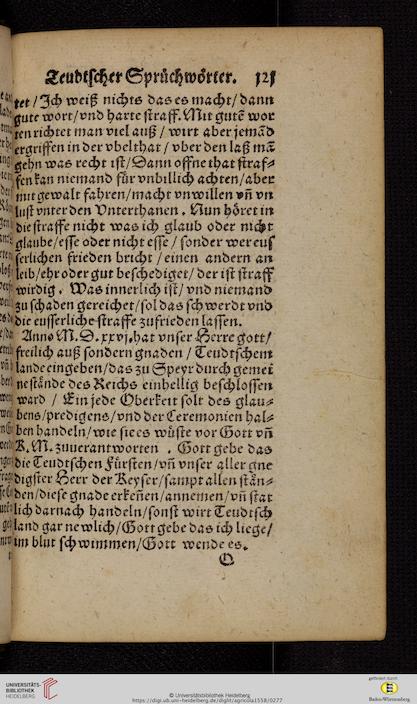 Teudtscher Sprüchwörter. 121
tet / Jch weiß nichts das es macht / dann
gute wort / vnd harte straff. Mit gutē wor
ten richtet man viel auß / wirt aber jemād
ergriffen in der vbelthat / vber den laß mā
gehn was recht ist / Dann offne that straf-
fen kan niemand für vnbillich achten / aber
mit gewalt fahren / macht vnwillen vn̄ vn
lust vnter den Vnterthanen. Nun höret in
die straffe nicht was ich glaub oder nicht
glaube / esse oder nicht esse / sonder wer eus
serlichen frieden bricht / einen andern an
leib / ehr oder gut beschediget / der ist straff
wirdig. Was innerlich ist / vnd niemand
zu schaden gereichet / sol das schwerdt vnd
die eusserliche straffe zufrieden lassen.
Anno M. D. xxvj. hat vnser Herre gott /
freilich auß sondern gnaden / Teudtschem
lande eingeben / das zu Speyr durch gemei
ne stände des Reichs einhellig beschlossen
ward / Ein jede Oberkeit solt des glau-
bens / predigens / vnd der Ceremonien hal-
ben handeln / wie sie es wüste vor Gott vn̄
K. M. zuuerantworten . Gott gebe das
die Teudtschen Fürsten / vn̄ vnser aller gne
digster Herr der Keyser / sampt allen stän-
den / diese gnade erkeñen / annemen / vn̄ stat
lich darnach handeln / sonst wirt Teudtsch
land gar newlich / Gott gebe das ich liege /
im blut schwimmen / Gott wende es.
Q
UNIVERSITÄTS-
BIBLIOTHEK
HEIDELBERG
© Universitätsbibliothek Heidelberg
https://digi.ub.uni-heidelberg.de/diglit/agricola1558/0277
gefördert durch
Baden-Württemberg